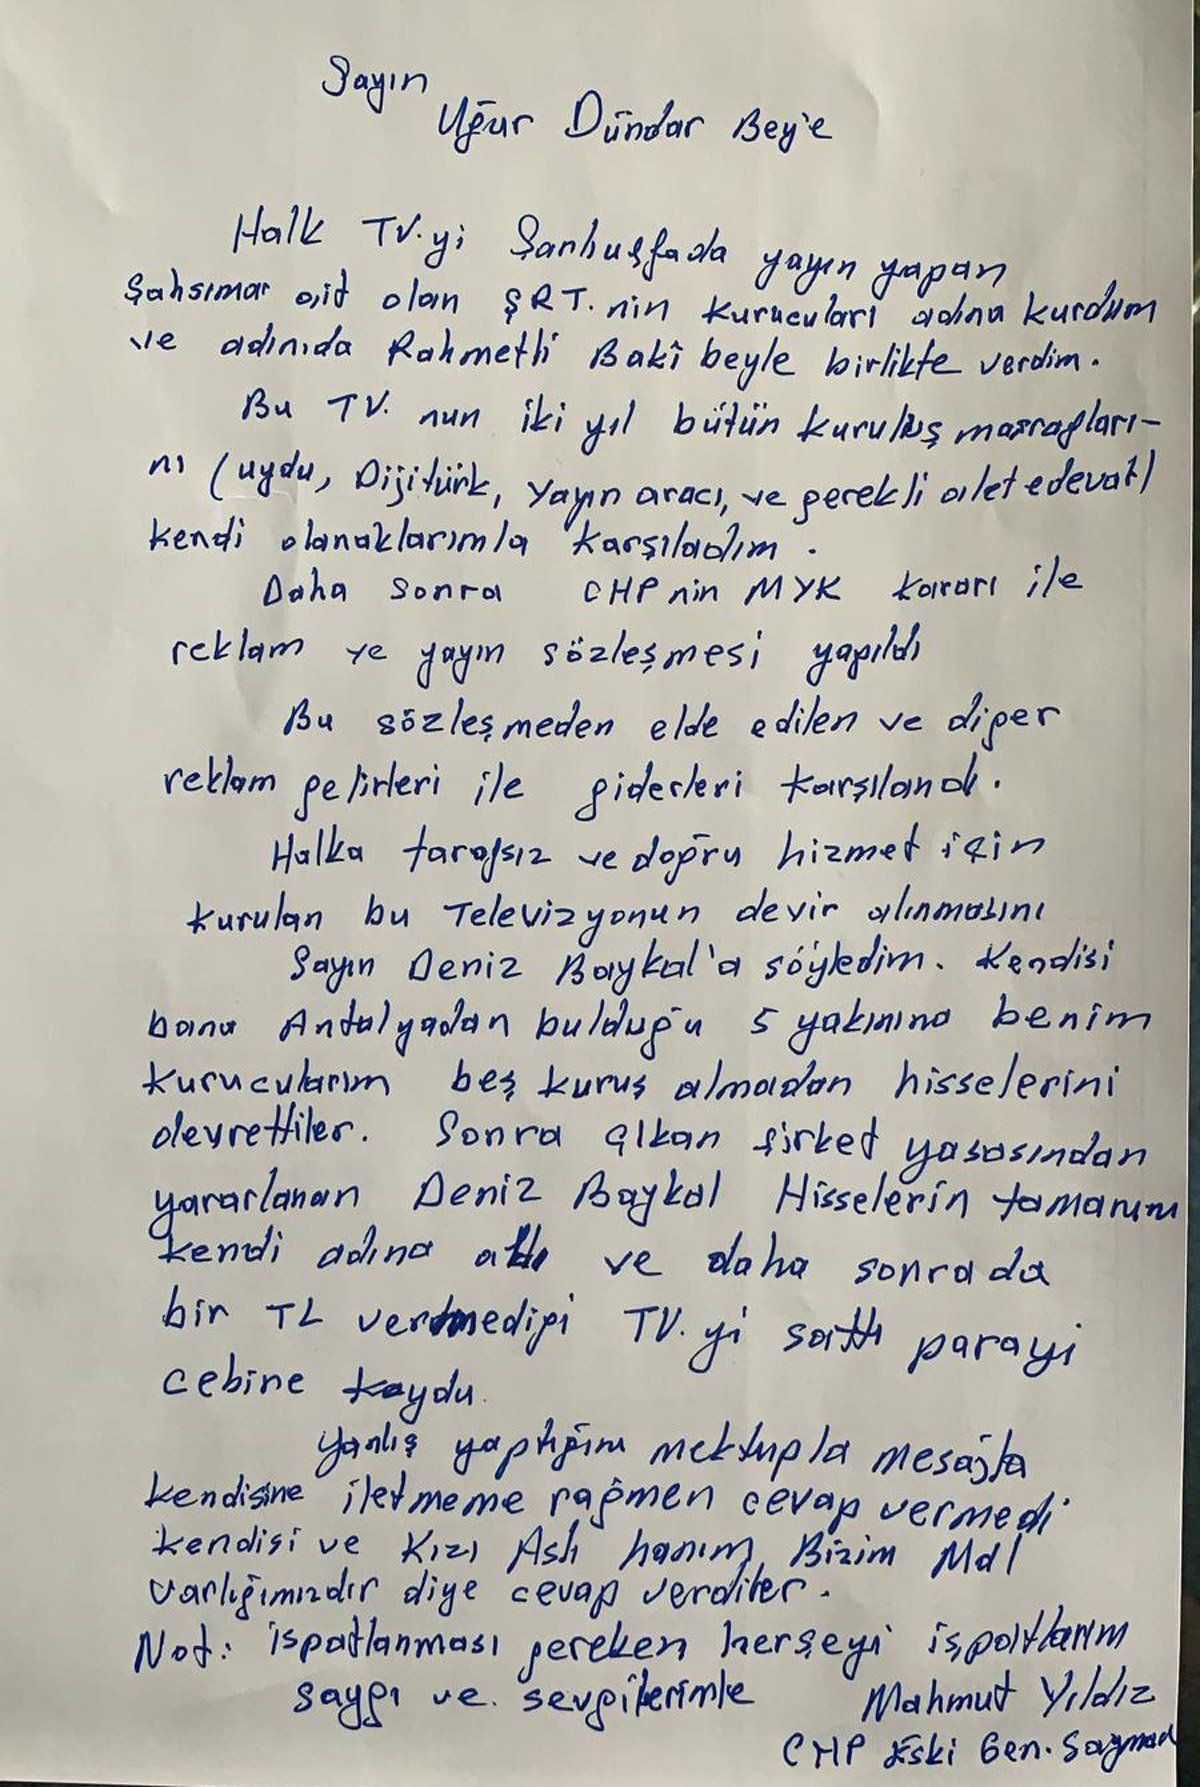 Sayın
Uğur Dündar Bey'e
Halk TV.yi Şanlıurfada yayın yapan
Şahsıma ait olan ŞRT.nin kurucuları adına kurdum
ve adınıda Rahmetli Bakî beyle birlikte verdim.
Bu TV. nun iki yıl bütün kuruluş masrafları-
nı (uydu, Dijitürk, Yayın aracı, ve gerekli alet edevat)
kendi olanaklarımla karşıladım.
Daha sonra CHPnin MYK kararı ile
reklam ve yayın sözleşmesi yapıldı
Bu sözleşmeden elde edilen ve diğer
reklam gelirleri ile giderleri karşılandı.
Halka tarafsız ve doğru hizmet için
kurulan bu Televizyonun devir alınmasını
Sayın Deniz Baykal'a söyledim. Kendisi
bana Antalyadan bulduğu 5 yakınına benim
kurucularım beş kuruş almadan hisselerini
devrettiler. Sonra çıkan şirket yasasından
yararlanan Deniz Baykal Hisselerin tamamını
kendi adına aldı ve daha sonrada
bir TL vermediği TV.yi sattı parayı
cebine koydu.
Yanlış yaptığını mektupla mesajla
kendisine iletmeme rağmen cevap vermedi
kendisi ve Kızı Aslı hanım Bizim Mal
varlığımızdır diye cevap verdiler.
Not: ispatlanması gereken herşeyi ispatlarım
saygı ve sevgilerimle Mahmut Yıldız
CHP Eski Gen. Sayman